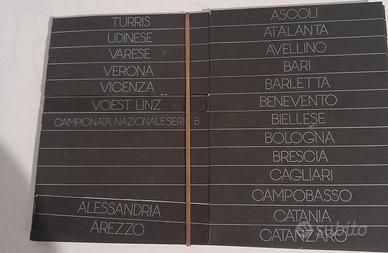 TURRIS
UDINESE
VARESE
VERONA
VICENZA
VOEST LINZ
CAMPIONATA NAZIONALE SERIE B
ALESSANDRIA
AREZZO
ASCOLI
ATALANTA
AVELLINO
BARI
BARLETTA
BENEVENTO
BIELLESE
BOLOGNA
BRESCIA
CAGLIARI
CAMPOBASSO
CATANIA
CATANZARO
subito